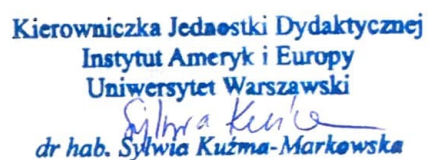 Kierowniczka Jednostki Dydaktycznej
Instytut Ameryk i Europy
Uniwersytet Warszawski
Sylwia Kuź
dr hab. Sylwia Kuźma-Markowska